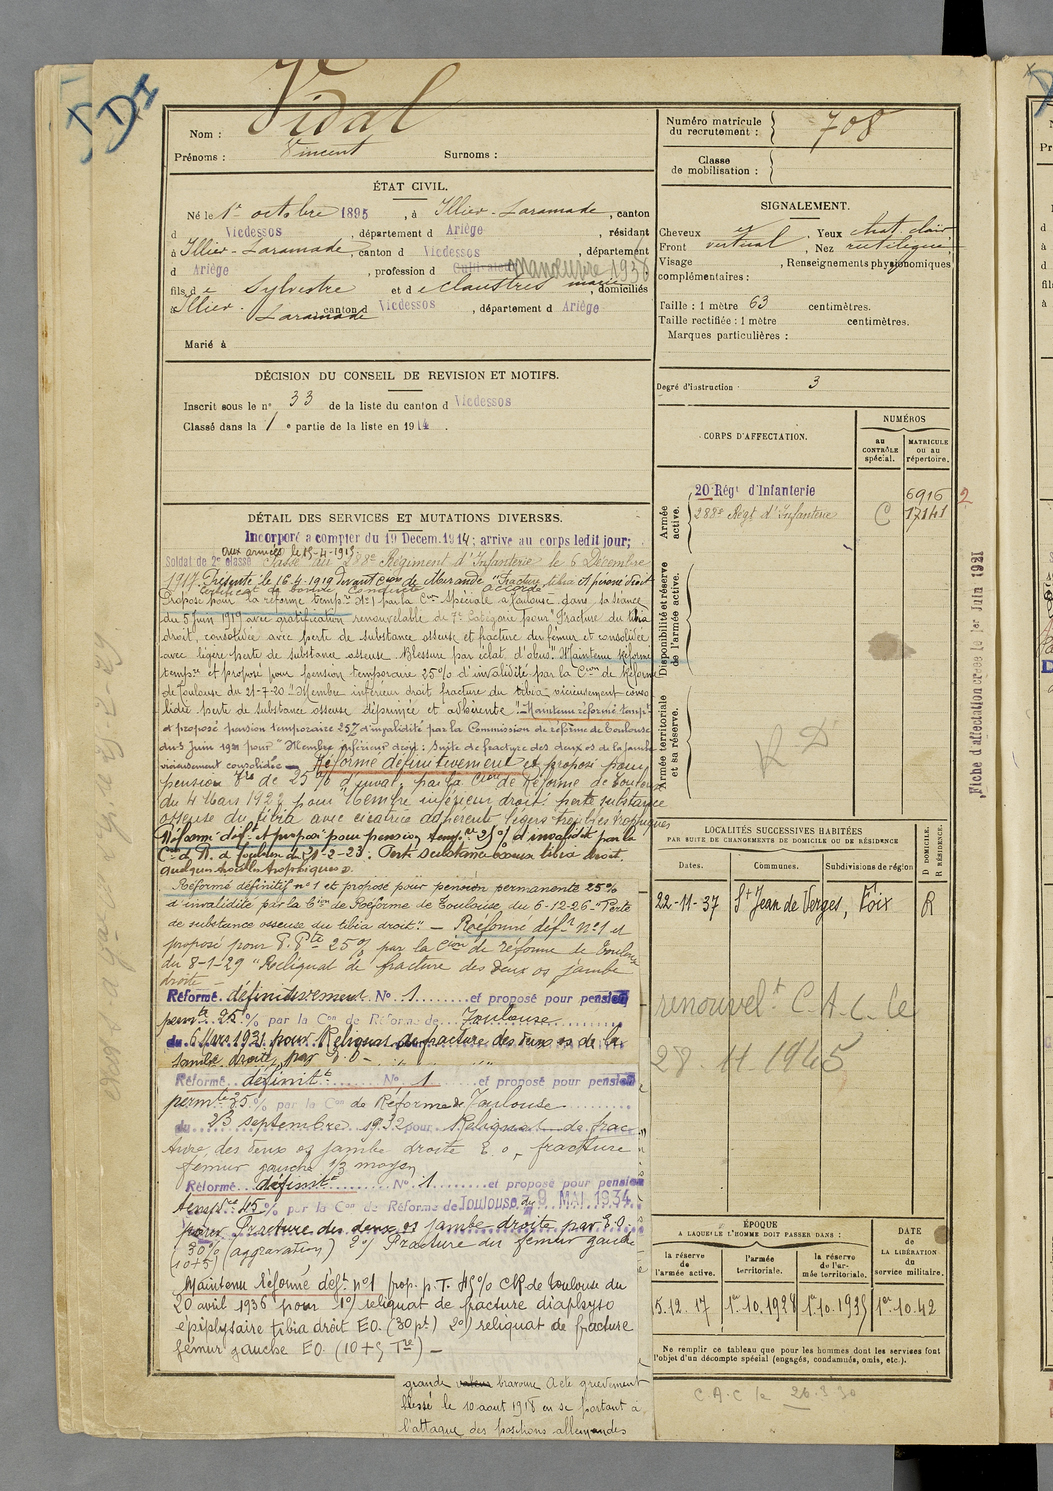 DDI
Nom : Vidal
Prénoms : Vincent Surnoms :
Numéro matricule du recrutement : 708
Classe de mobilisation :
ÉTAT CIVIL.
Né le 1er octobre 1895, à Illier-Laramade, canton
d Vicdessos, département d Ariège, résidant
à Illier-Laramade, canton d Vicdessos, département
d Ariège, profession d Cultivateur manœuvre 1936
fils de Sylvestre et de Claustres marie, domiciliés
à Illier-Laramade canton d Vicdessos, département d Ariège
Marié à
SIGNALEMENT.
Cheveux Yeux chat. clair
Front vertical, Nez rectiligne
Visage , Renseignements physionomiques
complémentaires :
Taille : 1 mètre 63 centimètres.
Taille rectifiée : 1 mètre centimètres.
Marques particulières :
Degré d'instruction : 3
DÉCISION DU CONSEIL DE REVISION ET MOTIFS.
Inscrit sous le n° 33 de la liste du canton d Vicdessos
Classé dans la 1 e partie de la liste en 1914.
CORPS D'AFFECTATION.
NUMÉROS
au CONTRÔLE spécial.
MATRICULE ou au répertoire.
Armée active.
20 Régt d'Infanterie 6916 2
288e Régt d'Infanterie C 17141
Disponibilité et réserve de l'armée active.
Armée territoriale et sa réserve.
R D
Fiche d'affectation créée le 1er Juin 1921
DÉTAIL DES SERVICES ET MUTATIONS DIVERSES.
Incorporé à compter du 19 Decem. 1914 ; arrivé au corps ledit jour;
aux armées le 15-4-1915
Soldat de 2e classe Passé au 288e Régiment d'Infanterie le 6 Décembre
1917. Présenté le 16.4.1919 devant Cion de Mirande "Fracture tibia et péroné droit
Certificat de bonne conduite accordé
Proposé pour la réforme tempre N°1 par la Con Spéciale de Toulouse dans sa séance
du 5 juin 1919 avec gratification renouvelable de 7e Catégorie pour "Fracture du tibia
droit, consolidée avec perte de substance osseuse et fracture du fémur et consolidée
avec légère perte de substance osseuse. Blessure par éclat d'obus." Maintenu réformé
tempre et proposé pour pension temporaire 25% d'invalidité par la Cion de Réforme
de Toulouse du 21-7-20 "Membre inférieur droit fracture du tibia vicieusement conso
lidée perte de substance osseuse déprimée et adhérente". Maintenu réformé tempre
et proposé pension temporaire 25% d'invalidité par la Commission de réforme de Toulouse
du 3 Juin 1921 pour "Membre inférieur droit : Suite de fracture des deux os de la jambe
vicieusement consolidée - Réformé définitivement et proposé pour
pension Tre de 25% d'inval. par la Cion de Réforme de Toulouse
du 4 Mars 1922 pour "Membre inférieur droit : perte substance
osseuse du tibia avec cicatrice adhérente légers troubles trophiques
Réformé déf. et proposé pour pension tempre 25% d'invalidité par la
Con d R. d Toulouse du 21-2-23. Perte substance osseuse tibia droit.
Quelques troubles trophiques
Réformé définitif n°1 et proposé pour pension permanente 25%
d'invalidité par la Cion de Réforme de Toulouse du 6-12-26 "Perte
de substance osseuse du tibia droit". - Réformé déft N°1 et
proposé pour P. Pte 25% par la Cion de réforme de Toulouse
du 8-1-29 "Reliquat de fracture des deux os jambe
droite -
Réformé définitivement N° 1 et proposé pour pension
permte 25% par la Con de Réforme de Toulouse
du 6 Mars 1931 pour Reliquat de fracture des deux os de la
jambe droite par E. O -
Réformé définitt N° 1 et proposé pour pension
permte 25% par la Con de Réforme de Toulouse
du 23 septembre 1932 pour Reliquat de frac
ture des deux os jambe droite E. O, fracture
fémur gauche 1/3 moyen
Réformé définitt N° 1 et proposé pour pension
tempre 45% par la Con de Réforme de TOULOUSE du 9 MAI 1934
pour Fracture des deux os jambe droite par E.O.
30% (aggravation) 2°/ Fracture du fémur gauche
(10+5)
Maintenu réformé déft n°1 prop. p. T. 45% CR de Toulouse du
20 avril 1936 pour 1°) reliquat de fracture diaphyso
épiphysaire tibia droit EO. (30%) 2°) reliquat de fracture
fémur gauche EO. (10+5 Tre) -
grande valeur bravoure a été grièvement
blessé le 10 août 1918 en se portant à
l'attaque des positions allemandes
LOCALITÉS SUCCESSIVES HABITÉES
PAR SUITE DE CHANGEMENTS DE DOMICILE OU DE RÉSIDENCE
Dates. Communes. Subdivisions de région D DOMICILE. R RÉSIDENCE.
22-11-37 St Jean de Verges, Foix R
renouvelt C.A.C. le
28.11.1945
ÉPOQUE
A LAQUELLE L'HOMME DOIT PASSER DANS :
la réserve de l'armée active.
l'armée territoriale.
la réserve de l'armée territoriale.
DATE de LA LIBÉRATION du service militaire.
5.12.17 1er.10.1928 1er.10.1935 1er.10.42
Ne remplir ce tableau que pour les hommes dont les services font
l'objet d'un décompte spécial (engagés, condamnés, omis, etc.).
C.A.C le 26.3.30